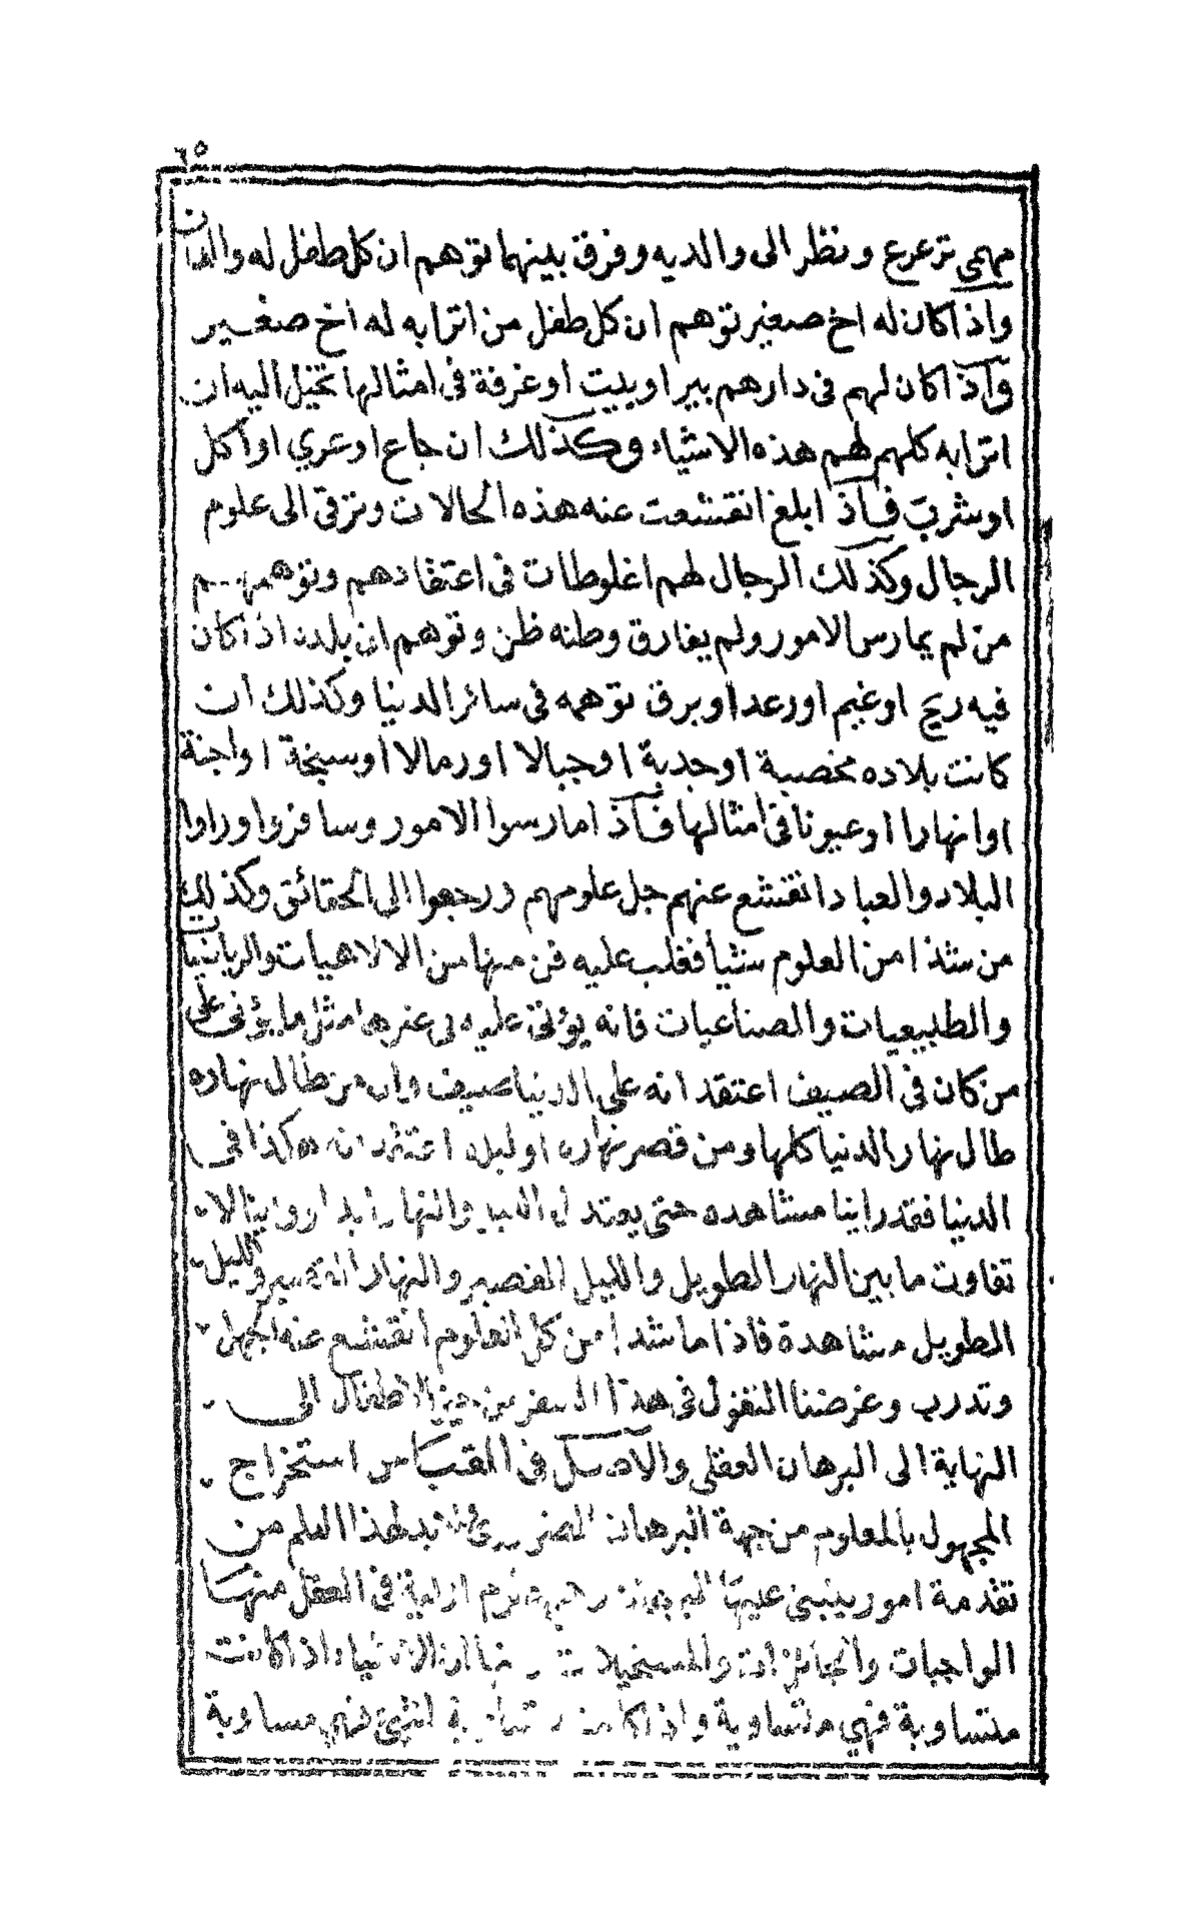 ٦٥
مهمى ترعرع ونظر الى والديه وفرق بينهما توهم ان كل طفل له والدان
واذا كان له اخ صغير توهم ان كل طفل من اترابه له اخ صغير
واذا كان لهم فى دارهم بير او بيت او غرفة فى امثالها تخيل اليه ان
اترابه كلهم لهم هذه الاشياء وكذلك ان جاع او عري او اكل
او شرب فاذا بلغ انقشعت عنه هذه الحالات وترقى الى علوم
الرجال وكذلك الرجال لهم اغلوطات فى اعتقادهم وتوهمهم
من لم يمارس الامور ولم يفارق وطنه ظن وتوهم ان بلدن اذا كان
فيه ريح او غيم او رعد او برق توهمه فى سائر الدنيا وكذلك ان
كانت بلاده مخصبة او جدبة او جبالا او رمالا او سبخة او اجنة
او انهارا او عيونا فى امثالها فاذا مارسوا الامور وسافروا وراوا
البلاد والعباد انقشع عنهم جل علومهم ورجعوا الى الحقائق وكذلك
من شذا من العلوم شيا فغلب عليه فن منها من الالاهيات والربانيات
والطبيعيات والصناعيات فانه يؤتى عليه فى غيرها مثل ما يؤتى على
من كان فى الصيف اعتقد انه على الدنيا صيف وان من طال نهاره
طال نهار الدنيا كلها ومن قصر نهاره او ليله اعتقد انه هكذا فى
الدنيا فقد راينا مشاهده حتى يعتدل الليل والنهار ابدا وراينا لا
تفاوت ما بين النهار الطويل والليل القصير والنهار القصير والليل
الطويل مشاهدة فاذا ما شدا من كل العلوم انقشع عنه الجهل
وتدرب وغرضنا النقول فى هذا السفر من حيز الاطفال الى
النهاية الى البرهان العقلى والاصل فى القياس استخراج
المجهول بالمعلوم من جهة البرهان الضروري فلا بد لهذا العلم من
تقدمة امور ينبنى عليها البرهان لازمة ازلية فى العقل منها
الواجبات والجائزات والمستحيلات الاشياء اذا كانت
متساوية فهي متساوية واذا كانت لشئ فهى مساوية